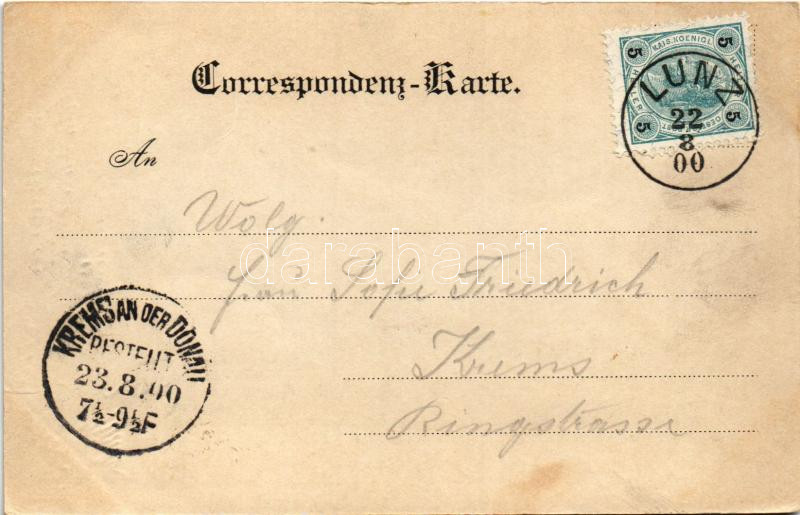 Correspondenz-Karte.
An
5 KAIS. KOENIGL 5
5 5
LUNZ
22
8
00
Wolg.
Frau Sofie Friedrich
darabanth
Krems
Ringstrasse
KREMS AN DER DONAU
BESTELLT
23.8.00
7½-9½F